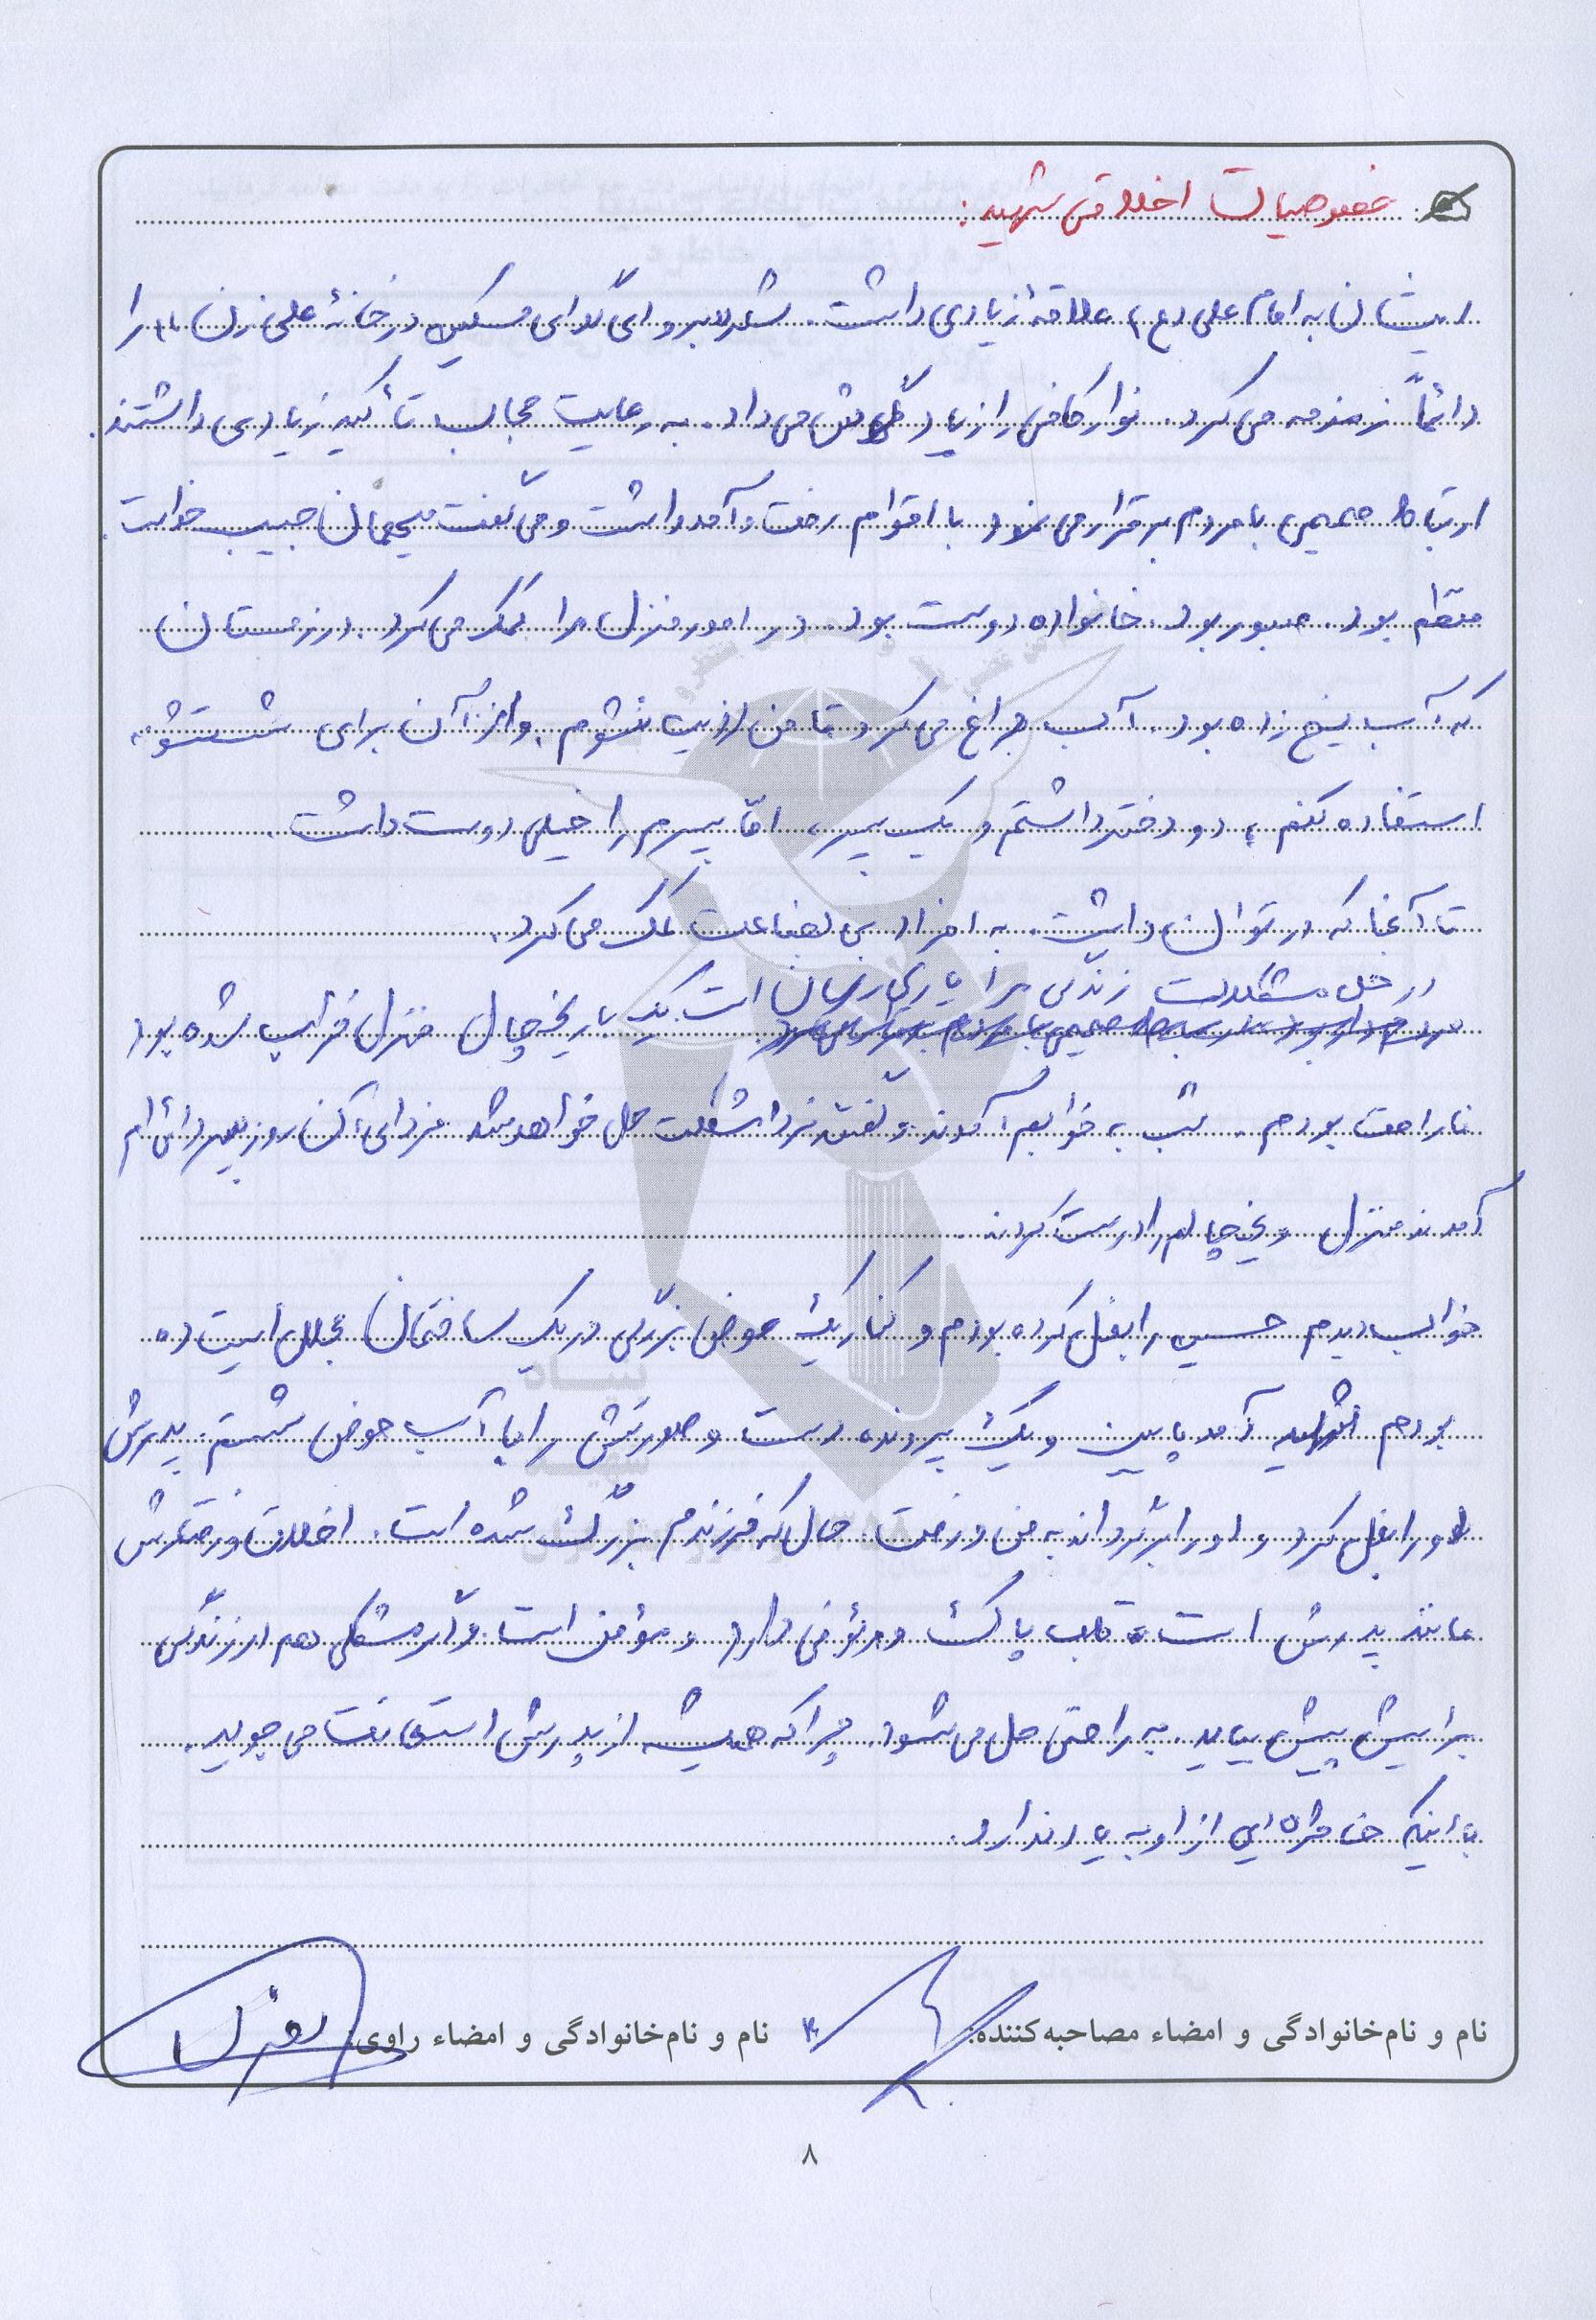 خصوصیات اخلاقی شهید:
ایشان به امام علی (ع) علاقهٔ زیادی داشت. شعر «برو ای گدای مسکین در خانهٔ علی زن» را
دائماً زمزمه می کرد. نوار کافی را زیاد گوش می داد. به رعایت حجاب تأکید زیادی داشتند.
ارتباط صمیمی با مردم برقرار می نمود با اقوام رفت و آمد داشت و می گفت میهمان حبیب خداست.
منظم بود. صبور بود. خانواده دوست بود. در امور منزل مرا کمک می کرد. در زمستان
که آب یخ زده بود. آب داغ می کرد تا من اذیت نشوم. و از آن برای شستشو
استفاده کنم. دو دختر داشتم و یک پسر، امّا پسرم را خیلی دوست داشت.
تا آنجا که در توان داشت. به افراد بی بضاعت کمک می کرد.
در حل مشکلات زندگی مرا یاری رسان است یک بار یخچال منزل خراب شده بود
ناراحت بودم. شب به خوابم آمدند و گفتند فردا مشکلت حل خواهد شد فردای آن روز پسر دائی ام
آمدند منزل و یخچالم را درست کردند.
خواب دیدم حسین را بغل کرده بودم و کنار یک حوض بزرگی در یک ساختمان مجلل ایستاده
بودم شهید آمد پایین و یک پرونده دست و صورتش را با آب حوض شستم. پدرش
او را بغل کرد و او را برگرداند به من و رفت. حال که فرزندم بزرگ شده است. اخلاق و رفتارش
مانند پدرش است قلب پاک و رئوفی دارد و مؤمن است و اگر مشکلی هم در زندگی
برایش پیش بیاید. به راحتی حل می شود. چرا که همیشه از پدرش استعانت می جوید.
با اینکه خاطره ایی از او به یاد ندارد.
نام و نام‌خانوادگی و امضاء مصاحبه‌کننده: نام و نام‌خانوادگی و امضاء راوی:
۸